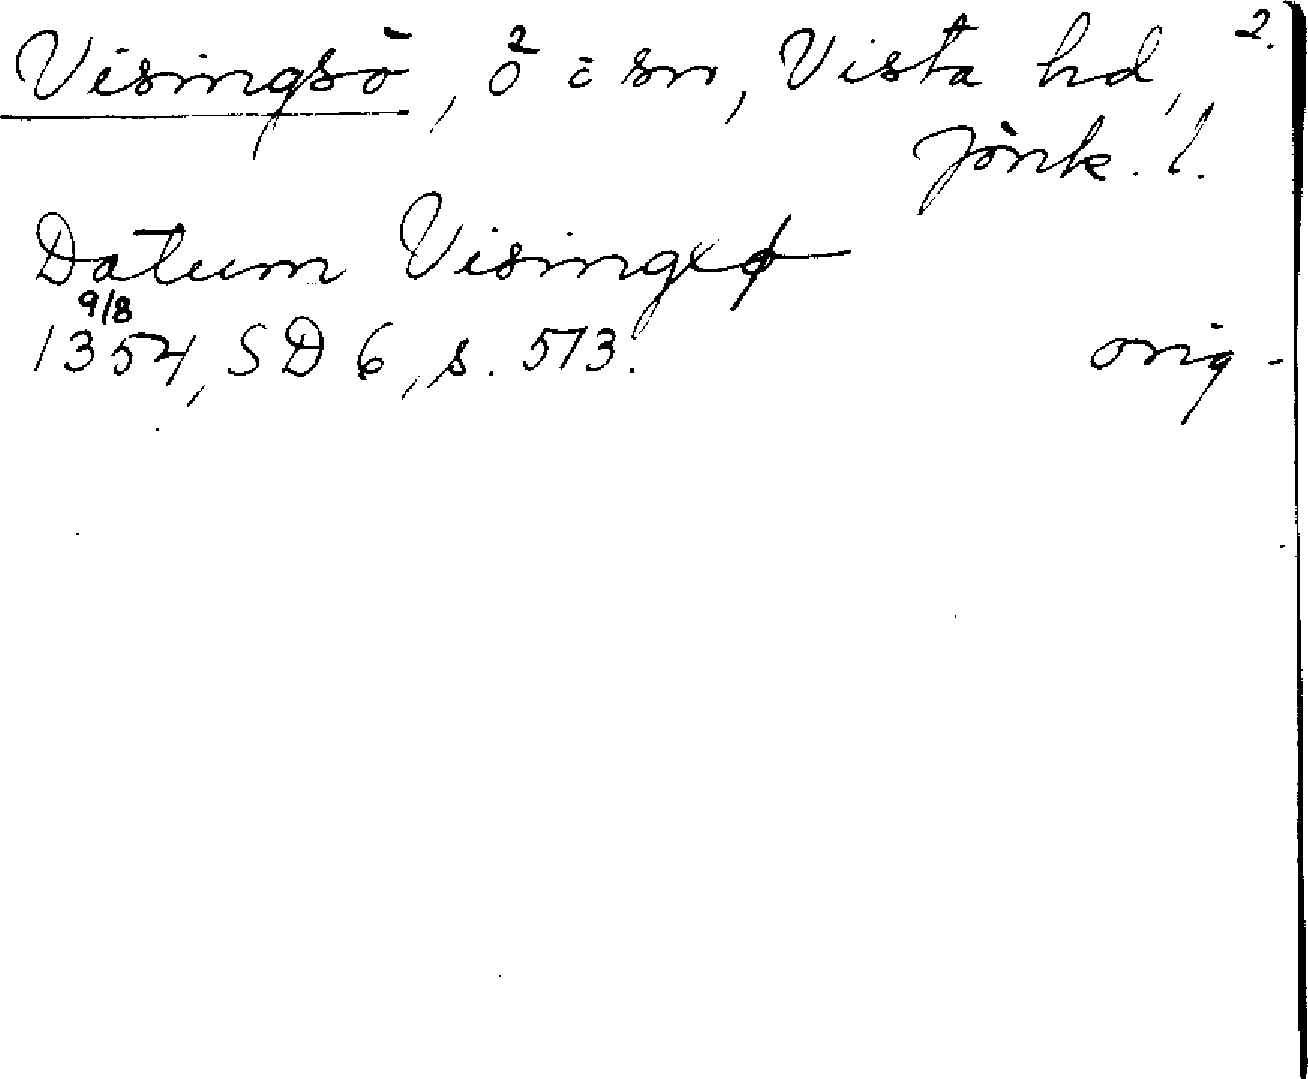 Visingsö, ö o sn, Vista hd, 2.
Jönk. l.
Datum Visingxø
9/8
1354, SD 6, s. 573. orig.